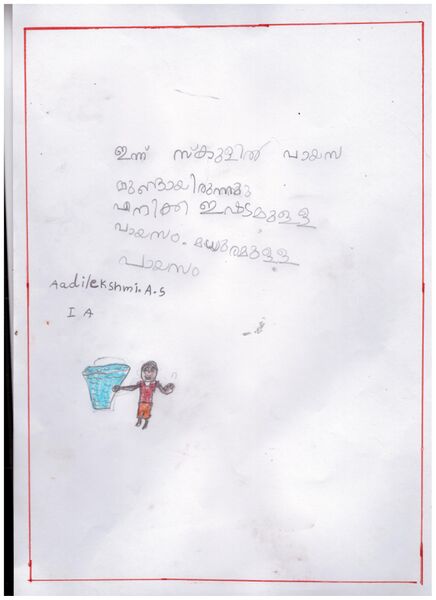 ഇന്ന് സ്കൂളിൽ പായസ
മുണ്ടായിരുന്നു
എനിക്ക് ഇഷ്ടമുള്ള
പായസം. മധുരമുള്ള
പായസം
Aadilekshmi.A.S
I A